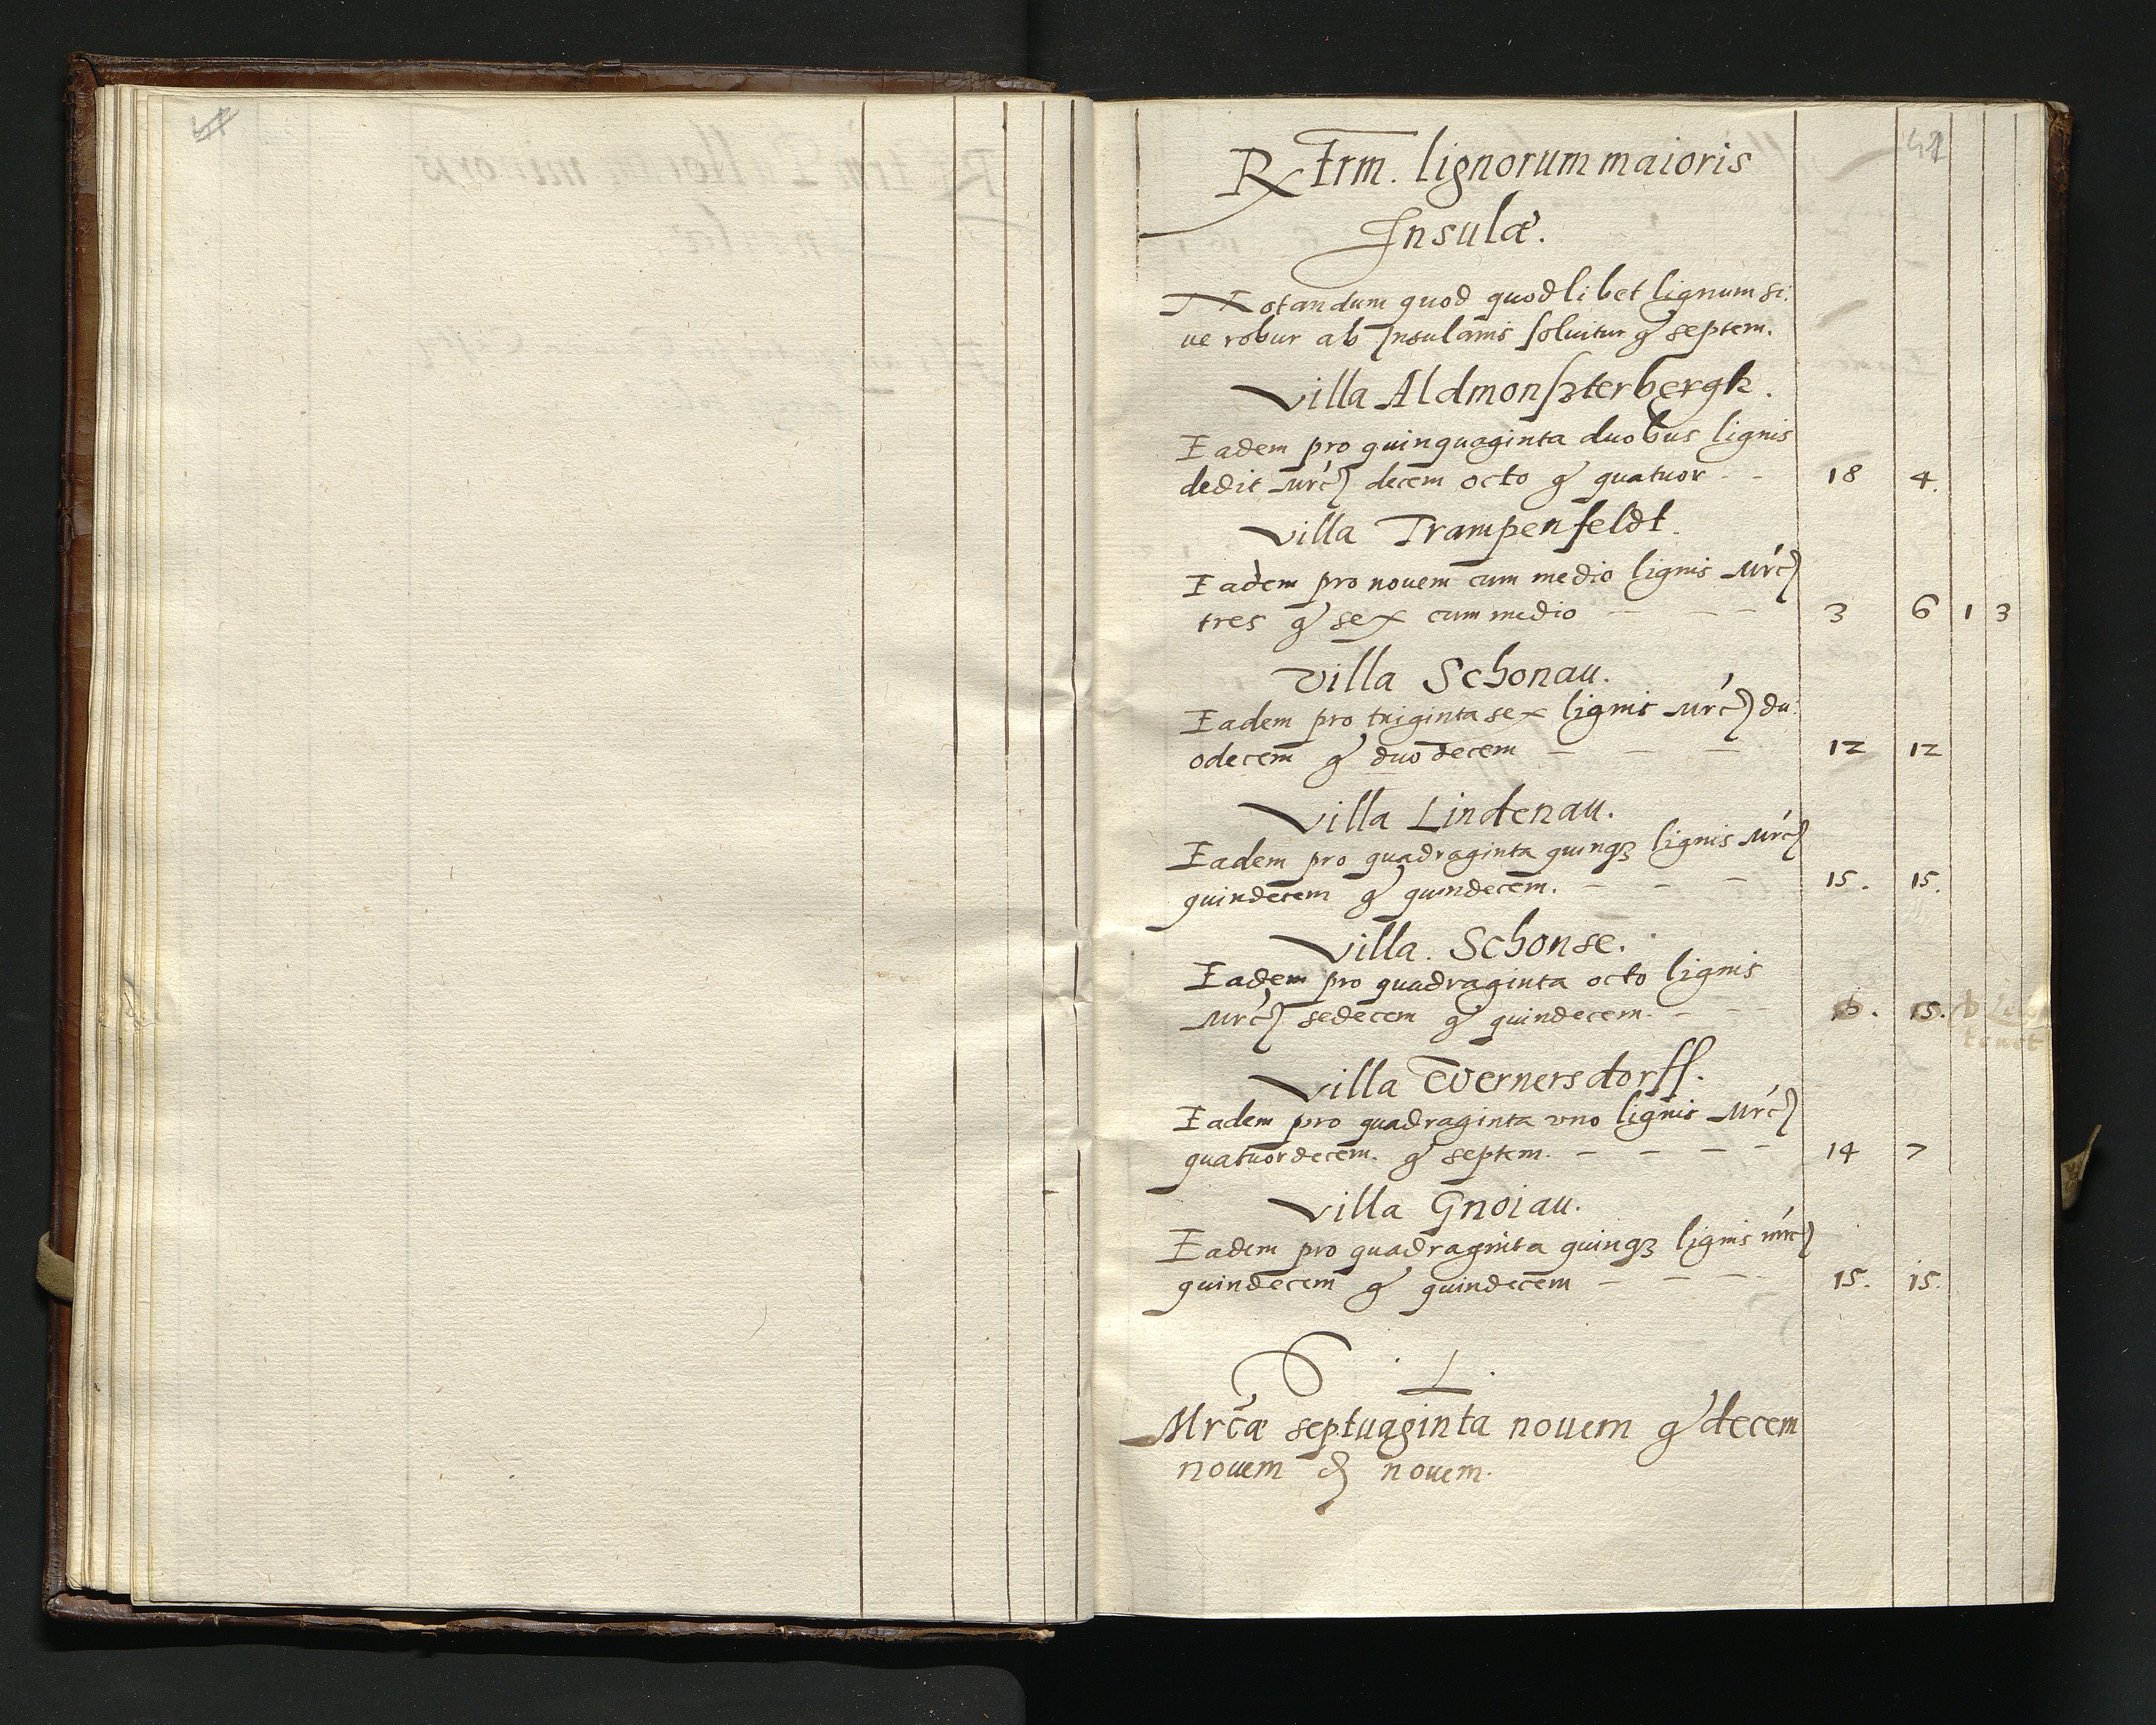 41
Rx Trm. lignorum maioris
Insulæ.
Notandum quod quodlibet lignum si:
ue robur ab Insulanis soluitur g septem.
Villa Aldmonszterbergk.
Eadem pro quinquaginta duobus lignis
dedit Mrc decem octo g quatuor - - 18 4.
Villa Trampenfeldt.
Eadem pro nouem cum medio lignis Mrc
tres g sex cum medio - - - 3 6 1 3
Villa Schonau.
Eadem pro triginta sex lignis Mrc du:
odecem g duodecem - - - 12 12
Villa Lindenau.
Eadem pro quadraginta quinqꝫ lignis Mrc
quindecem g quindecem. - - - 15. 15.
Villa. Schonse.
Eadem pro quadraginta octo lignis
Mrc sedecem g quindecem. - - 15.
tenet
Villa Wernersdorff.
Eadem pro quadraginta vno lignis Mrc
quatuordecem. g septem. - - - - 14 7
Villa Gnoiau.
Eadem pro quadraginta quinqꝫ lignis mrc
quindecem g quindecem - - - 15. 15.
L.
Mrcæ septuaginta nouem g decem
nouem ₰ nouem.